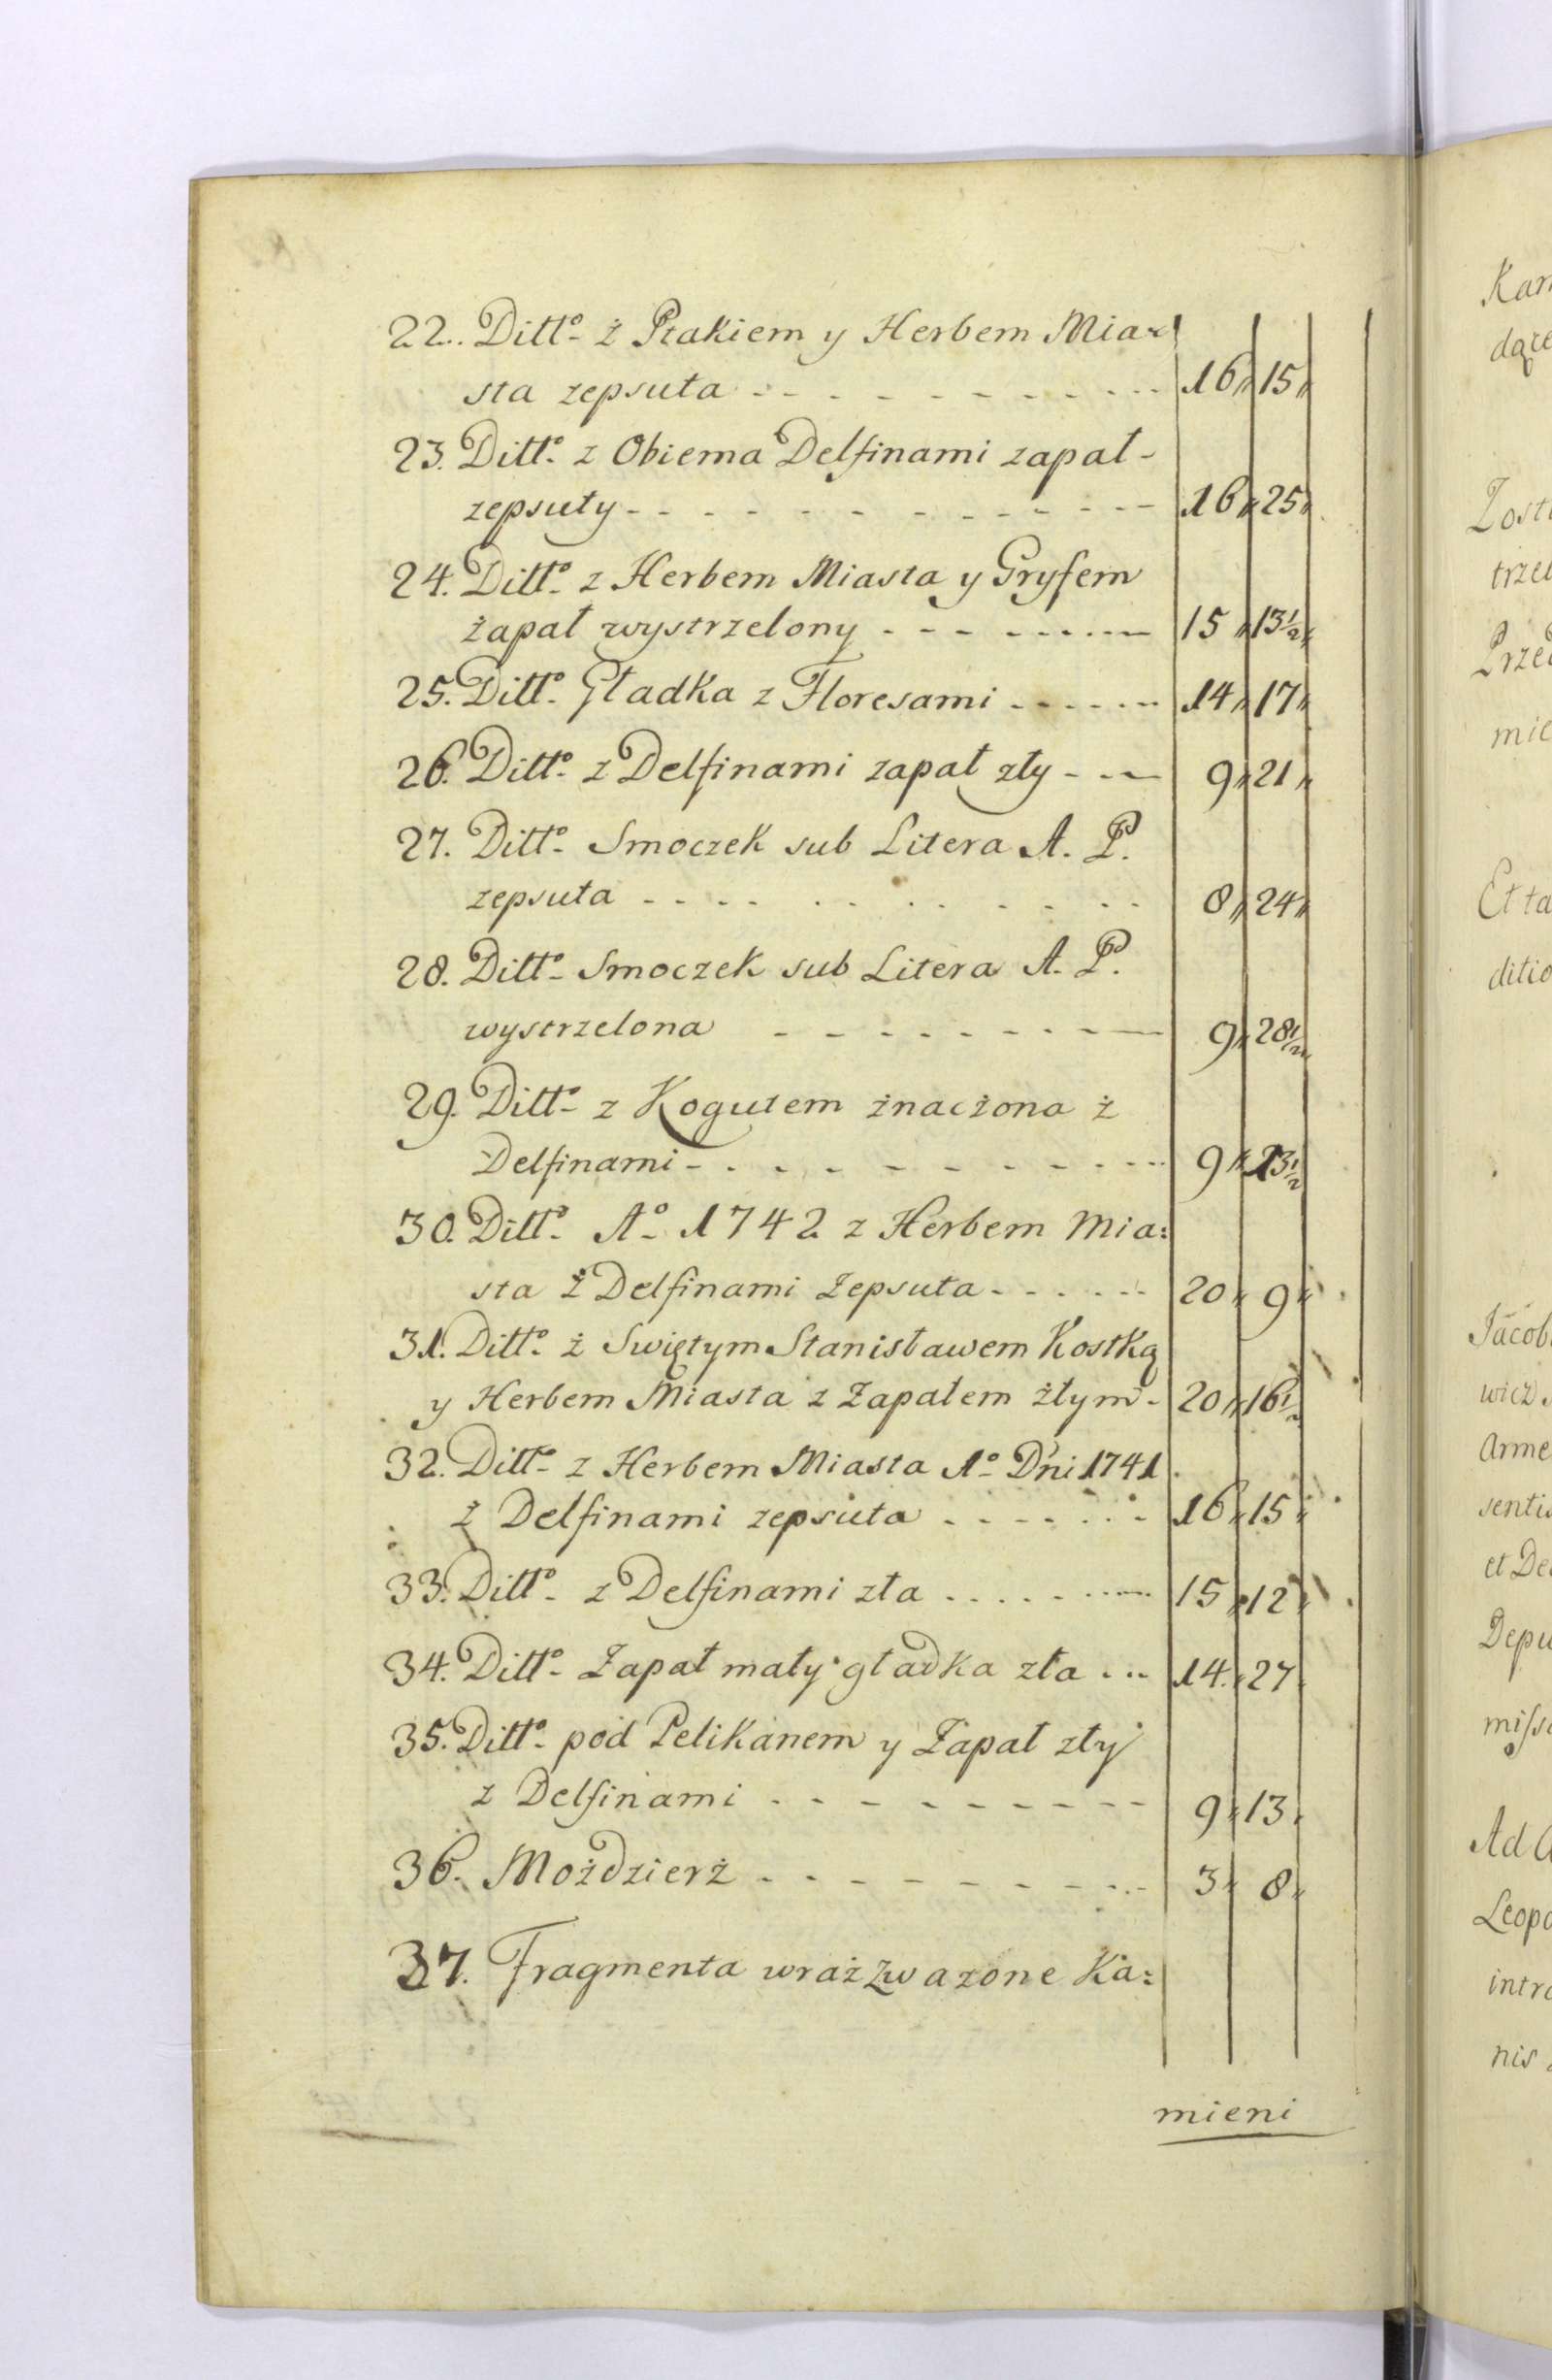 22. Ditto. ż Ptakiem y Herbem Mia=
sta zepsuta - - - - - - - - - - 16〃 15〃
23. Ditto. z Obiema Delfinami zapał-
zepsuty - - - - - - - - - - - - 16〃 25〃
24. Ditto. z Herbem Miasta y Gryfem
żapał wystrzelony - - - - - - - 15〃 13½〃
25. Ditto. Gładka z Floresami - - - - - - 14〃 17〃
26. Ditto. z Delfinami zapał zły - - - 9〃 21〃
27. Ditto. Smoczek sub Litera A. P.
zepsuta - - - - - - - - - - 8〃 24〃
28. Ditto. Smoczek sub Litera A. P.
wystrzelona - - - - - - - - - 9〃 28½〃
29. Ditto. z Kogutem żnaczżona ż
Delfinami - - - - - - - - - - - 9〃 23½
30. Ditto. Ao. 1742 z Herbem Mia:
sta ż Delfinami Zepsuta - - - - - - 20〃 9〃
31. Ditto. ż Swiętym Stanisławem Kostką
y Herbem Miasta z Zapałem żłym - 20〃 16½
32. Ditto. z Herbem Miasta Ao. Dni 1741
ż Delfinami zepsuta - - - - - - - 16〃 15〃
33. Ditto. z Delfinami zła - - - - - - - 15〃 12〃
34. Ditto. Zapał mały gładka zła - - - 14〃 27
35. Ditto. pod Pelikanem y Zapał zły
z Delfinami - - - - - - - - - - 9〃 13〃
36. Możdzierż - - - - - - - - - - 3〃 8〃
37. Fragmenta wraż Zważone Ka:
mieni
Kam
dące
Zost
trzel
Przed
mie
Et ta
ditio
Jacob
wicz
Arme
senti
et De
Depu
missa
Ad
Leopo
intra
nis